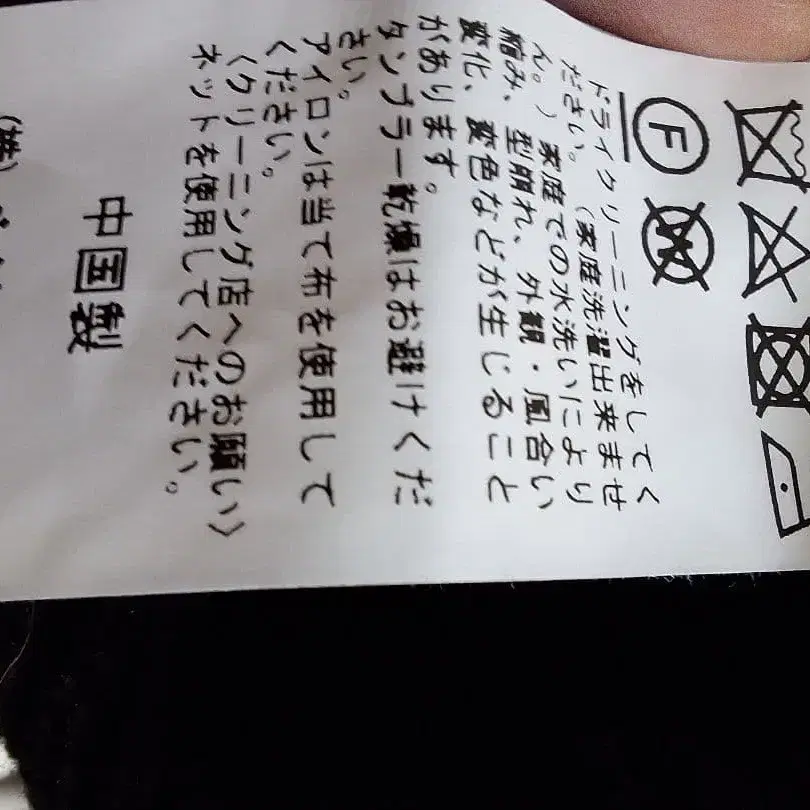 F
W
ドライクリーニングをしてく
ださい。(家庭洗濯出来ませ
ん。)家庭での水洗いにより
縮み、型崩れ、外観・風合い
変化、変色などが生じること
があります。
タンブラー乾燥はお避けくだ
さい。
アイロンは当て布を使用して
ください。
〈クリーニング店へのお願い〉
ネットを使用してください。
中国製